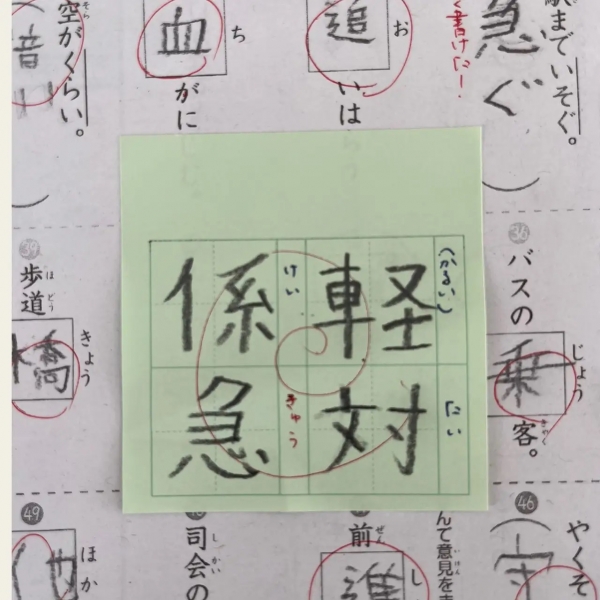 駅までいそぐ。
急ぐ
く書けた!
お
追
いは
ち
血
がに
空がくらい。
そら
音
(かるい)
軽
たい
対
けい
係
きゅう
急
36
バスの
じょう
乗
客。
きゃく
39
歩道
ほどう
きょう
橋
46
やくそ
守
んて意見を
いけん
前
ぜん
し
進
司会の
しかい
49
ほか
他